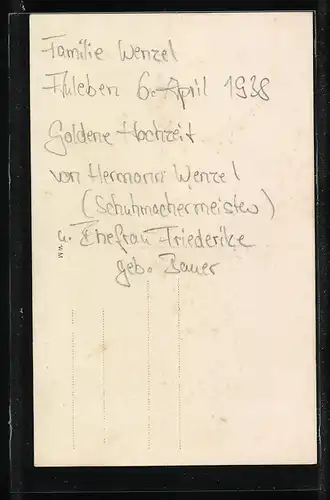 Familie Wenzel
Auleben 6. April 1938
Goldene Hochzeit
von Hermann Wenzel
(Schuhmachermeister)
u. Ehefrau Friederike
geb. Bauer